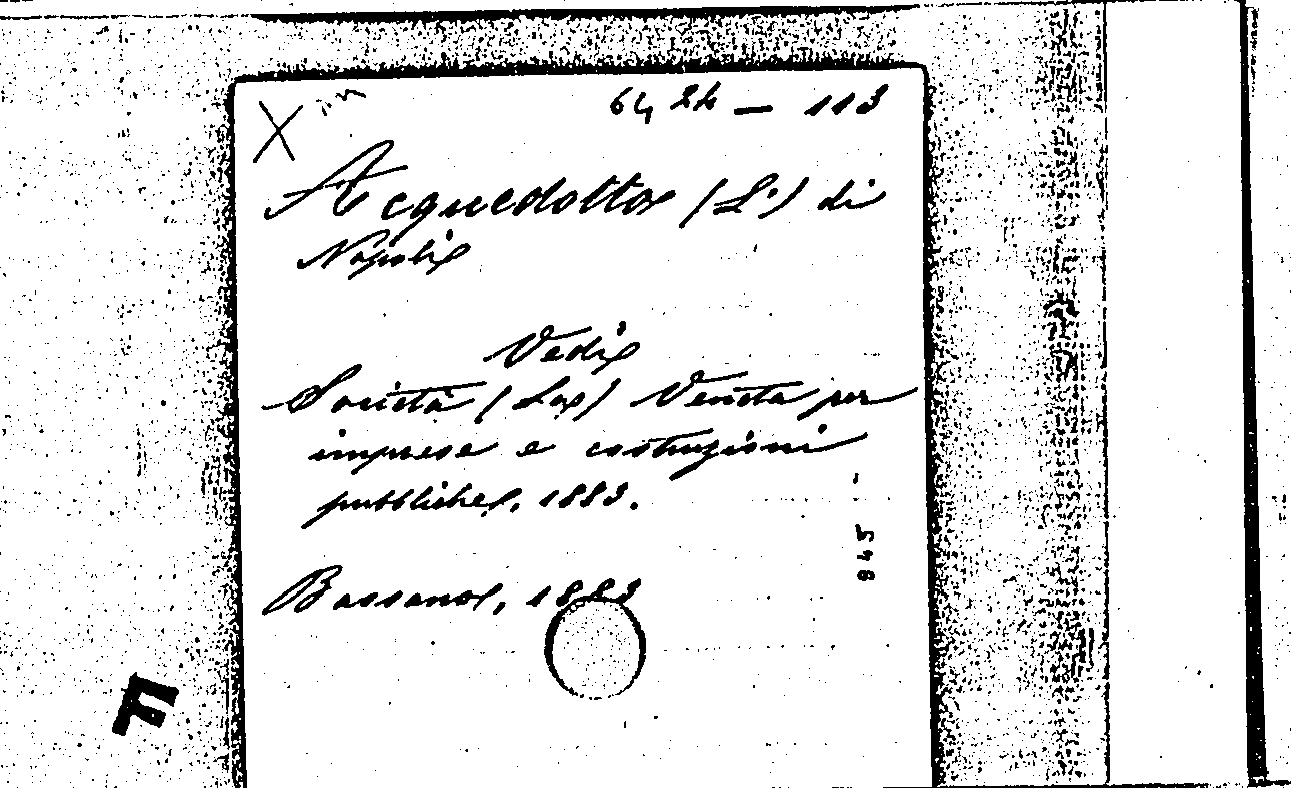 64 24 — 113
Acquedotto (L') di
Napoli
Vedi
Società (La) Veneta per
imprese e costruzioni
pubbliche, 1883.
945 -
Bassano, 1883
F